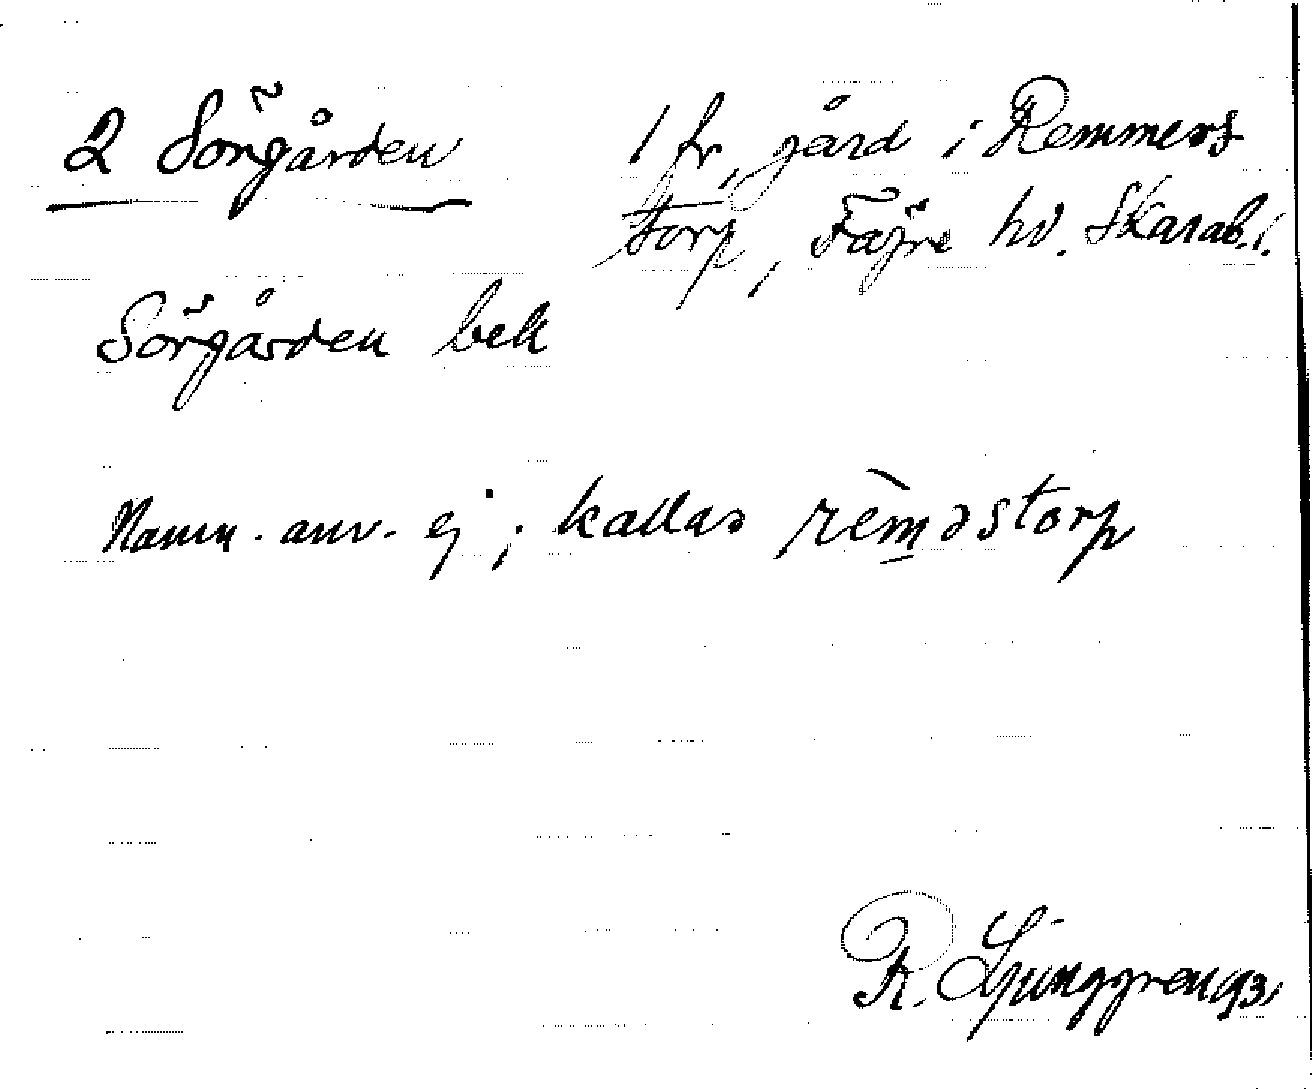 2 Sörgården
1 fr, gård i Remmers
torp, Fägre hd. Skarab.l.
Sörgården bek
Namn. anv. ej; kallas rèm̲əstorp
R. Ljunggren 93,